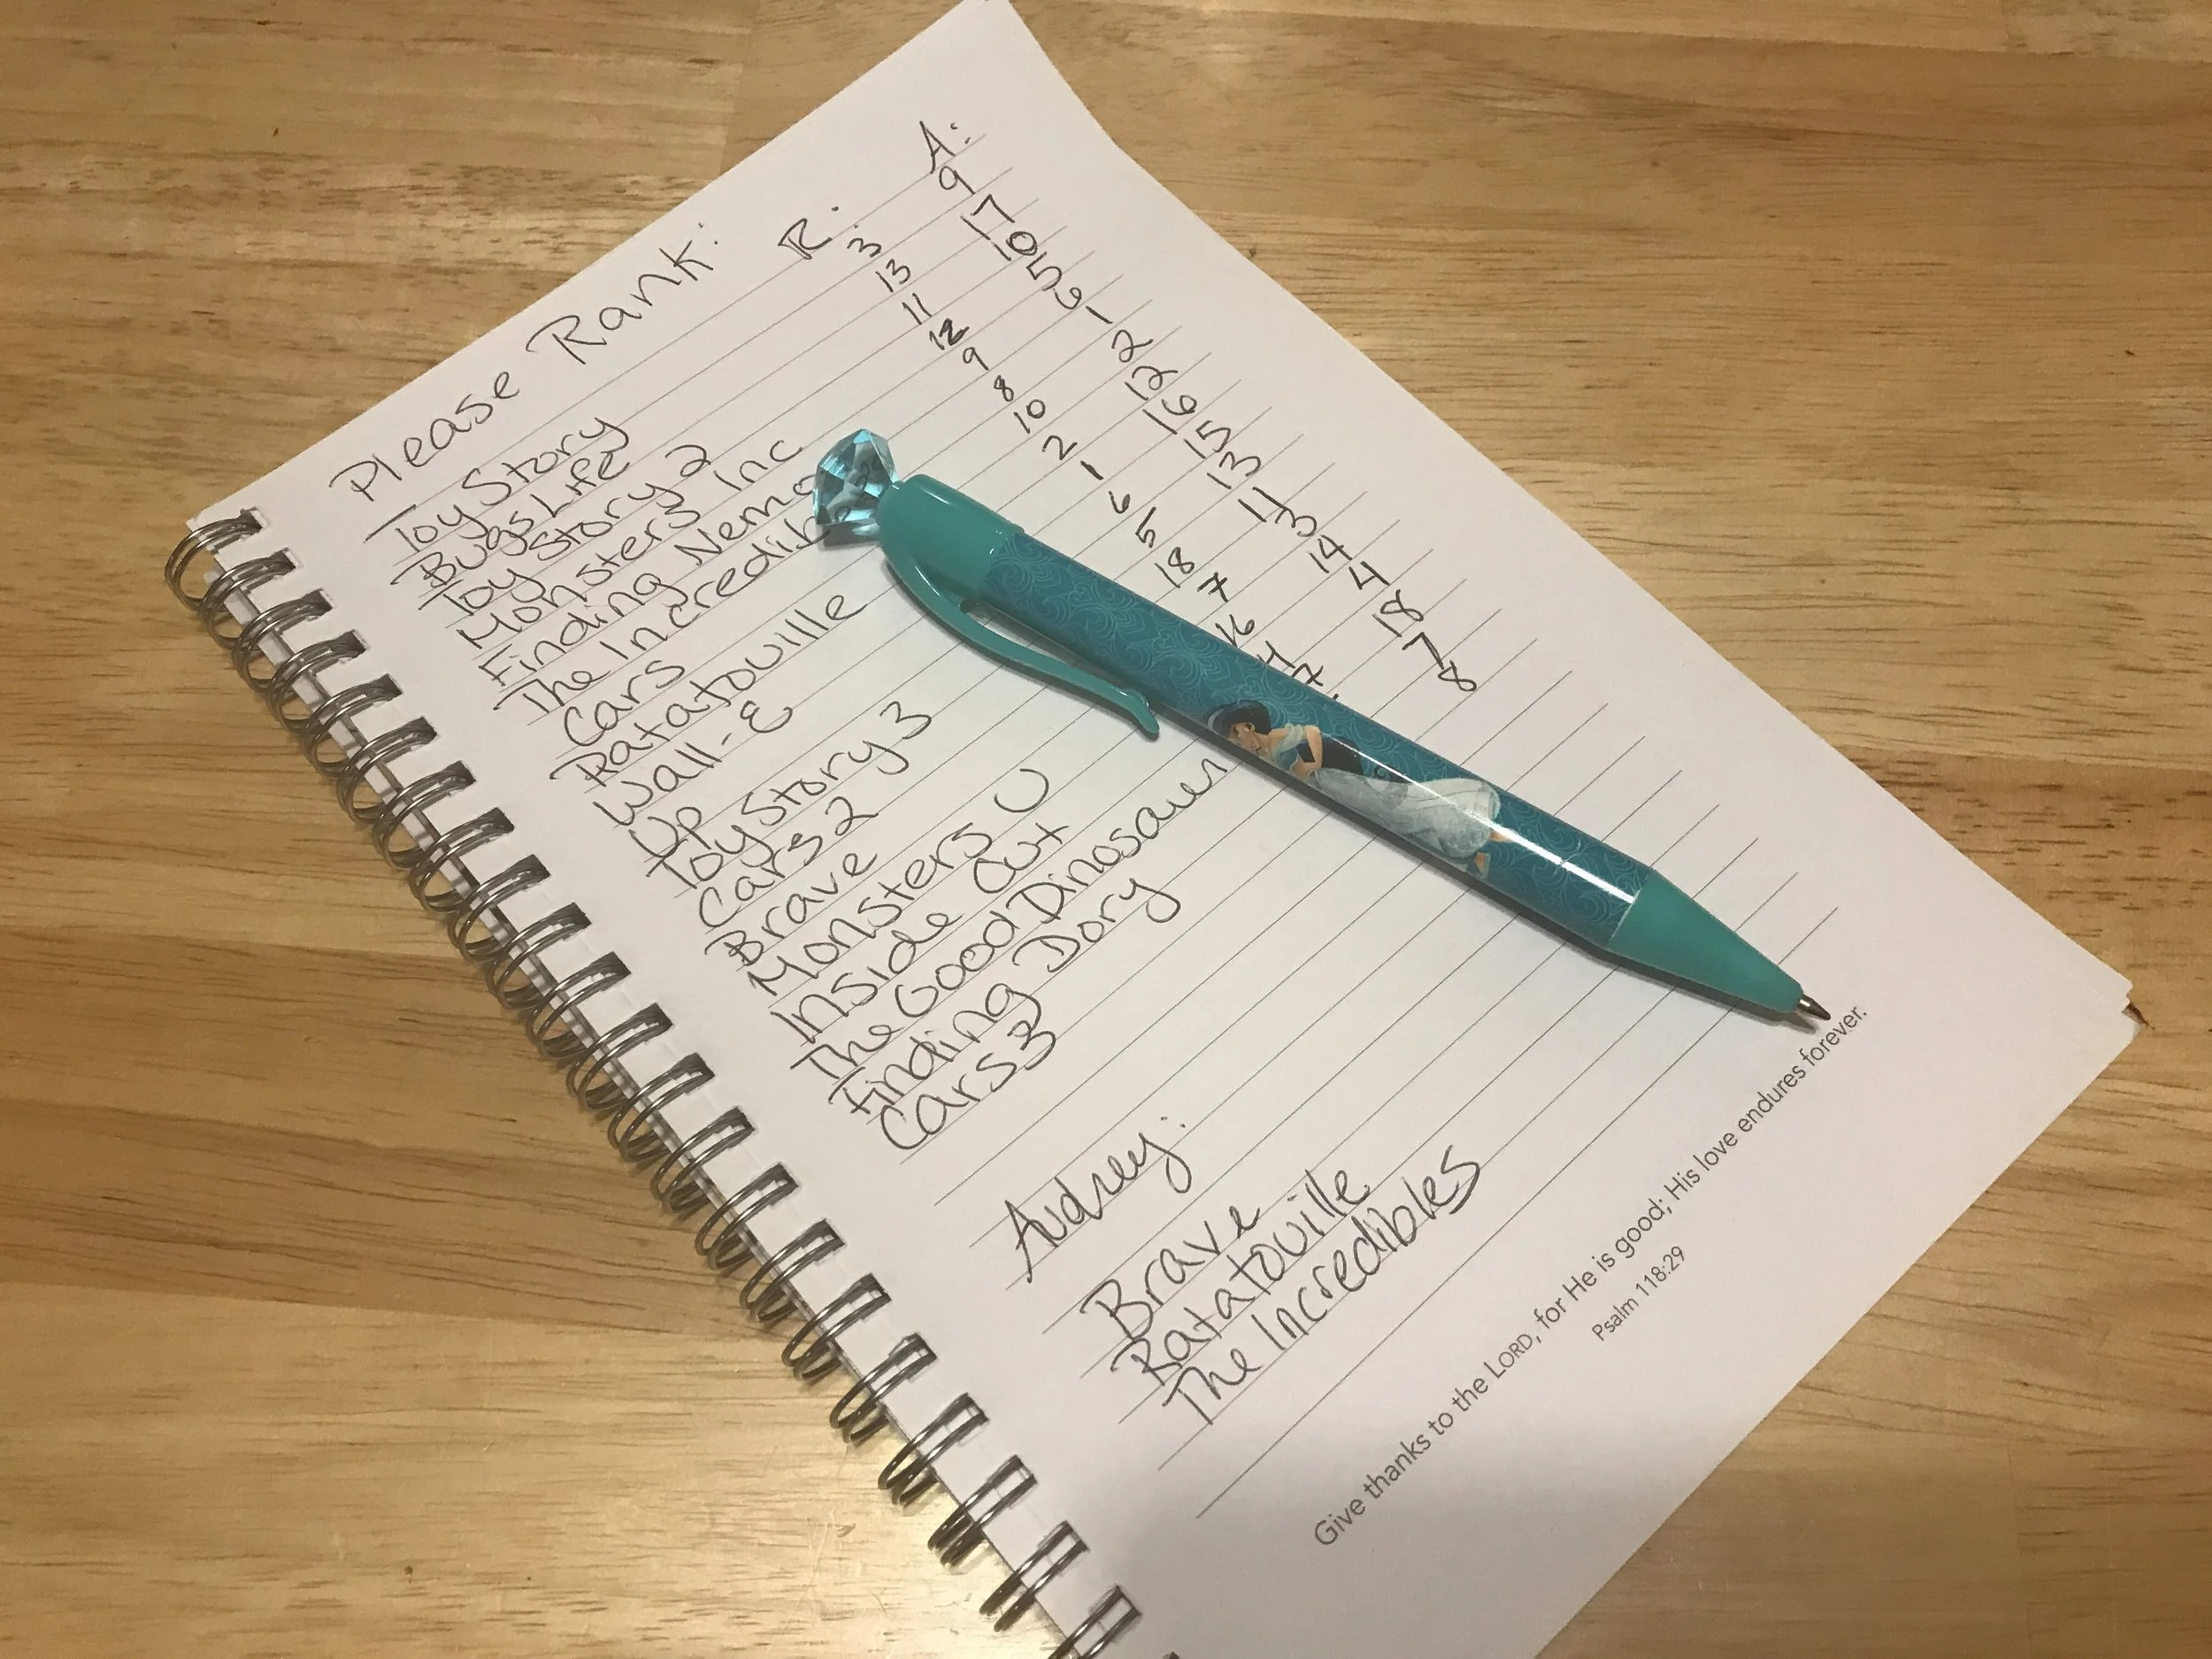 Please Rank: R: A:
Toy Story 3 9
Bugs Life 13 17
Toy Story 2 11 10
Monsters Inc 12 5
Finding Nemo 9 6
The Incredib 8 1
Cars 10 2
Ratatouille 2 12
Wall-E 1 16
Up 6 15
Toy Story 3 5 13
Cars 2 18 11
Brave 7 3
Monsters U 16 14
Inside Out 4 4
The Good Dinosaur 18
Finding Dory 7
Cars 3 8
Audrey:
Brave
Ratatouille
The Incredibles
Give thanks to the LORD, for He is good; His love endures forever.
Psalm 118:29